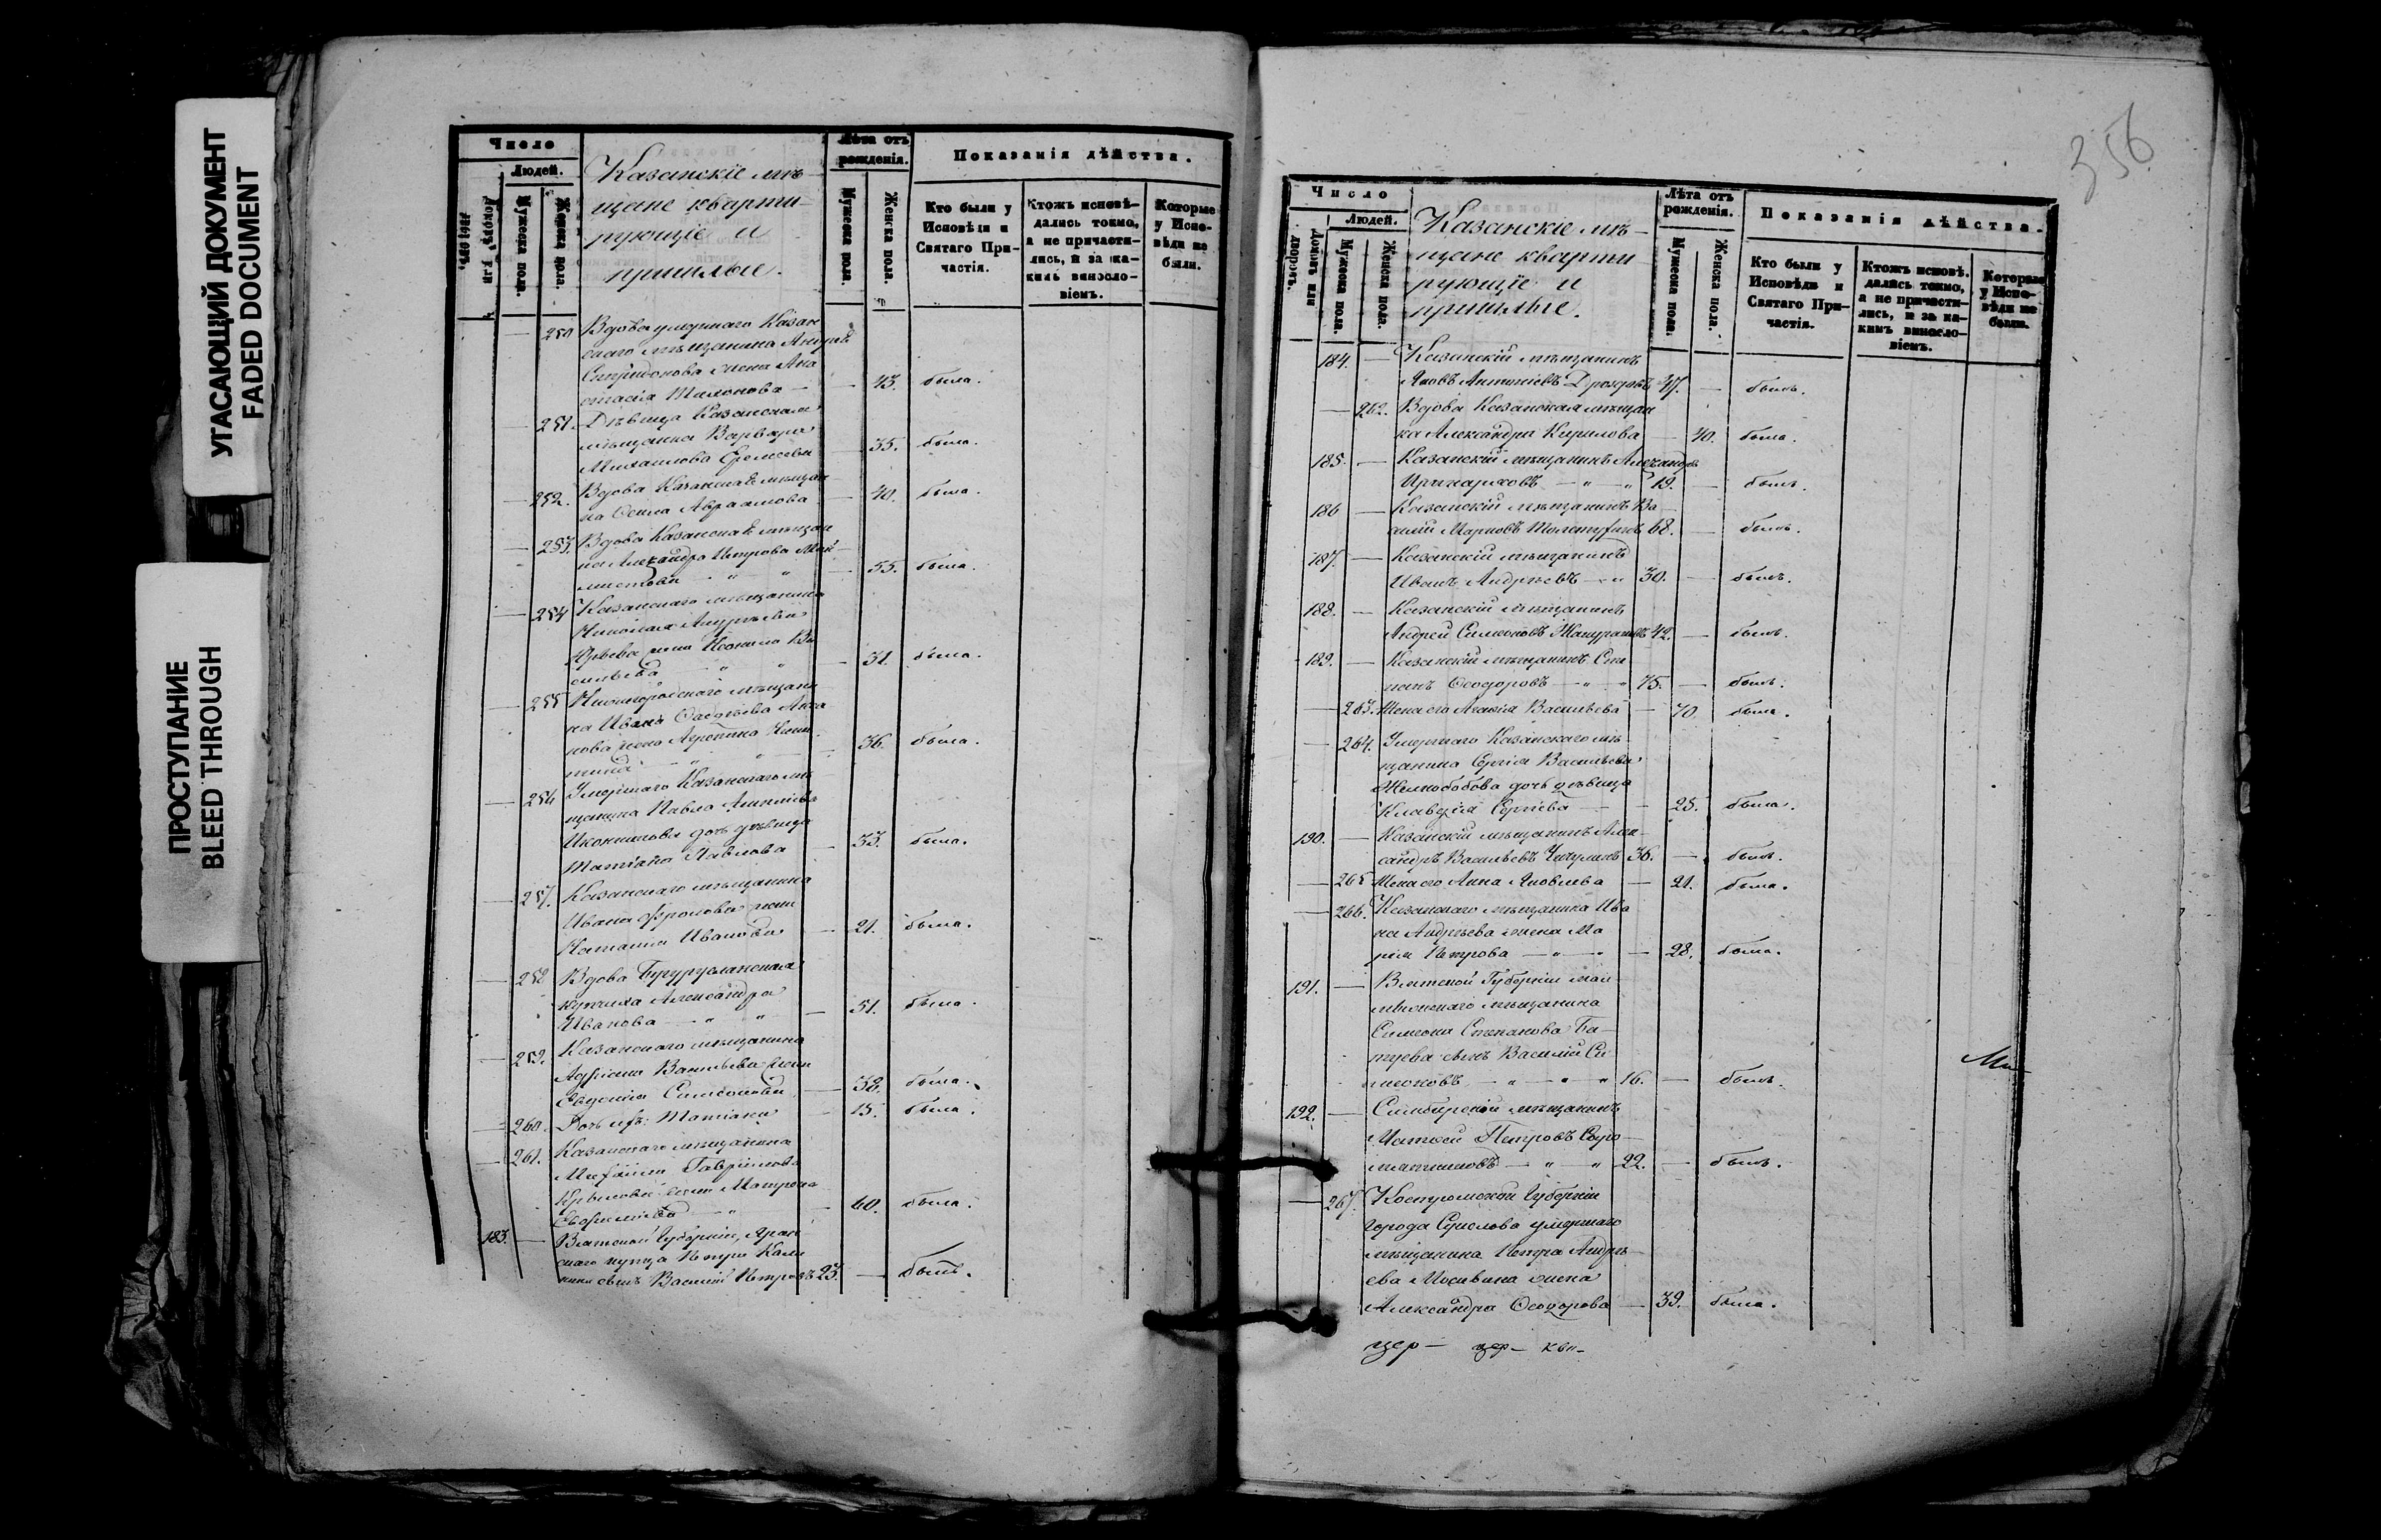 УГАСАЮЩИЙ ДОКУМЕНТ
FADED DOCUMENT
ПРОСТУПАНИЕ
BLEED THROUGH
Число
Людей.
Домовъ или
дворовъ.
Мужеска пола.
Женска пола.
Казанскіе мѣ-
щане кварти-
рующіе и
пришлые.
Лѣта отъ
рожденія.
Мужеска пола.
Женска пола.
Показанія дѣйства.
Кто были у
Исповѣди и
Святаго При-
частія.
Ктожъ исповѣ-
дались токмо,
а не причасти-
лись, и за ка-
кимъ винословіемъ.
Которые
у Испо-
вѣди не
были.
— 250 Вдова умершаго Казан
скаго мѣщанина Андрея
Спиридонова жена Ана
стасія — — 43. была.
— 251. Дѣвица Казанская
мѣщанка Варвара
Михаилова — 35. была.
— 252. Вдова Казанская мѣщан
ка Авраамова — 40. была.
— 253. Вдова Казанская мѣщан
ка Александра Петрова
— 55. была.
— 254 Казанскаго мѣщанина
Николая Андреева
Юрьева жена Ва
сильева — 31. была.
— 255 мѣщани
на Ивана
нова жена Агропина Ники
тина — 36. была.
— 256 Умершаго Казанскаго мѣ
щанина Павла
Иконникова дочь дѣвица
Татіана Павлова — 33. была.
— 257. Казанскаго мѣщанина
Ивана Фролова жена
Наталия Иванова — 21. была.
— 258 Вдова Бугурусланская
купчиха Александра
Иванова — " " — 51. была.
— 259. Казанскаго мѣщанина
Адріана Васильева жена
Евдокія Симеонова — 38. была.
— 260. Дочь ихъ: Татіана — 15. была.
— 261. Казанскаго мѣщанина
Михаила Гаврилова
Крылова жена Матрона
— 60. была.
183. — Вятской Губерніи, Яран
скаго купца Петра Кали
нина сынъ Василій Петровъ 23. — былъ.
356
Число
Людей.
Домовъ или
дворовъ.
Мужеска пола.
Женска пола.
Казанскіе мѣ-
щане кварти
рующіе и
пришлые.
Лѣта отъ
рожденія.
Мужеска пола.
Женска пола.
Показанія дѣйства.
Кто были у
Исповѣди и
Святаго При-
частія.
Ктожъ исповѣ-
дались токмо,
а не причасти-
лись, и за ка-
кимъ винословіемъ.
Которые
у Испо-
вѣди не
были.
184. — Казанскій мѣщанинъ
Яковъ Антоніевъ Дроздовъ 47. — былъ.
— 262. Вдова Казанская мѣщан
ка Александра Кирилова — 40. была.
185. — Казанскій мѣщанинъ Александръ
— " — " 19. — былъ.
186 — Казанскій мѣщанинъ Ва
силій Марковъ 68. — былъ.
187. — Казанскій мѣщанинъ
Иванъ Андреевъ — " 30. — былъ.
188. — Казанскій мѣщанинъ
Андрей Симеоновъ 42. — былъ.
189. — Казанскій мѣщанинъ Сте
панъ Ѳеодоровъ — " — " 75. — былъ.
— 263. Жена его Агафія Васильева — 70. была.
— 264. Умершаго Казанскаго мѣ-
щанина Сергія Васильева
Желнобобова дочь дѣвица
Клавдія Сергіева — — 25. была.
190. — Казанскій мѣщанинъ Алек-
сандръ Васильевъ 36. — былъ.
— 265 Жена его Анна Яковлева — 21. была.
— 266. Казанскаго мѣщанина Ива
на Андреева жена Ма
рія Петрова — " — " — 28. была.
191. — Вятской Губерніи Мал
мыжскаго мѣщанина
Симеона Степанова Ба-
туева сынъ Василій Си
меоновъ — " — " — " 16. — былъ.
192. — Симбирскій мѣщанинъ
Матвей Петровъ
— " — " 22. — былъ.
— 267. Костромской Губерніи
города умершаго
мѣщанина Петра Андре-
ева жена
Александра Ѳеодорова — 39. была.